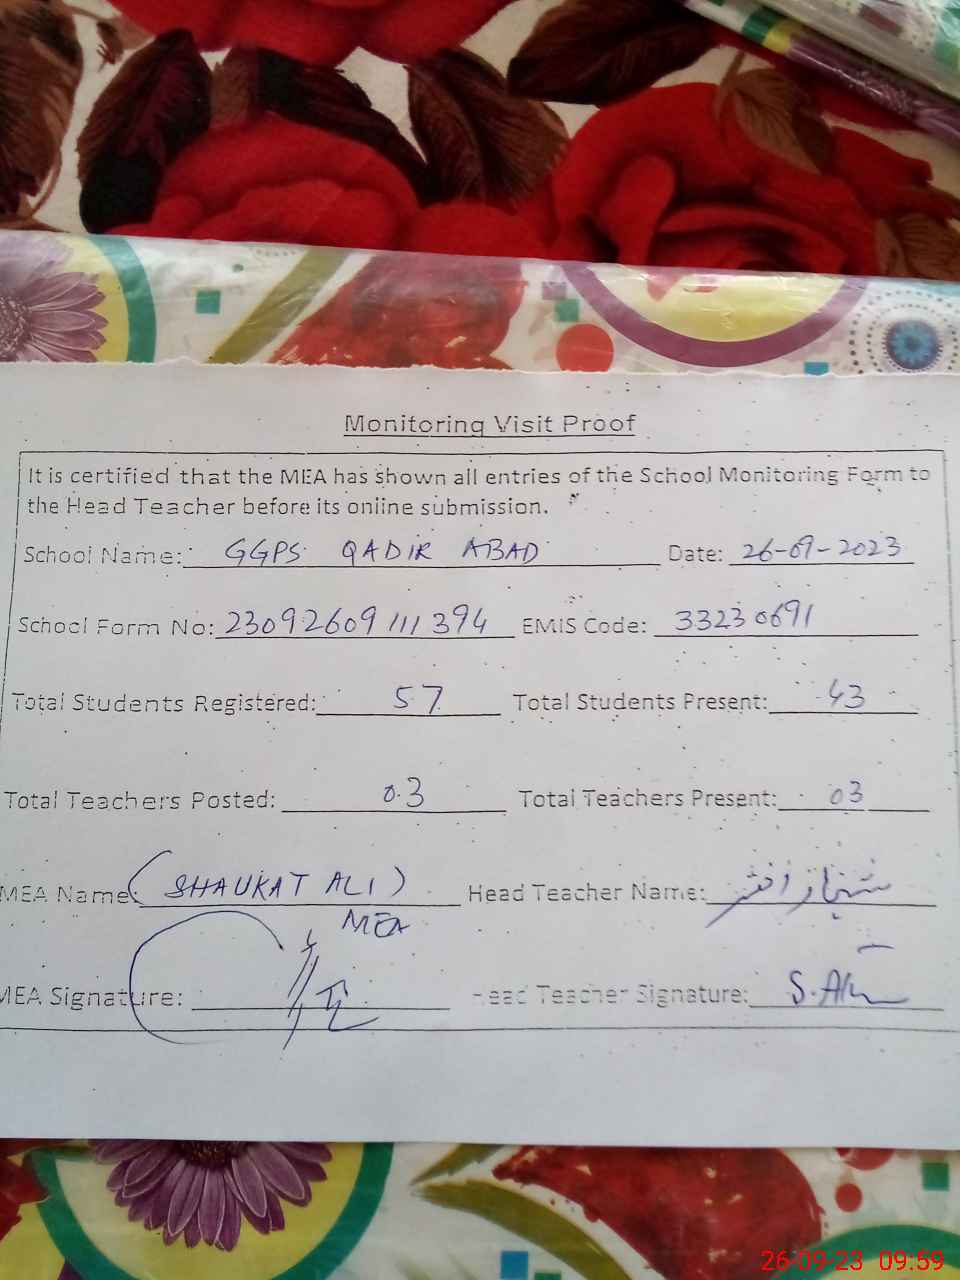 Monitoring Visit Proof
It is certified that the MEA has shown all entries of the School Monitoring Form to
the Head Teacher before its online submission.
School Name: GGPS QADIR ABAD Date: 26-09-2023
School Form No: 23092609111394 EMIS Code: 33230691
Total Students Registered: 57 Total Students Present: 43
Total Teachers Posted: 03 Total Teachers Present: 03
MEA Name: (SHAUKAT ALI) Head Teacher Name: شہناز اختر
MEA
MEA Signature: Head Teacher Signature:
26-09-23 09:59